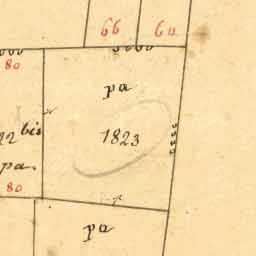 66 60
80
pa
bis
1823
pa.
80
pa